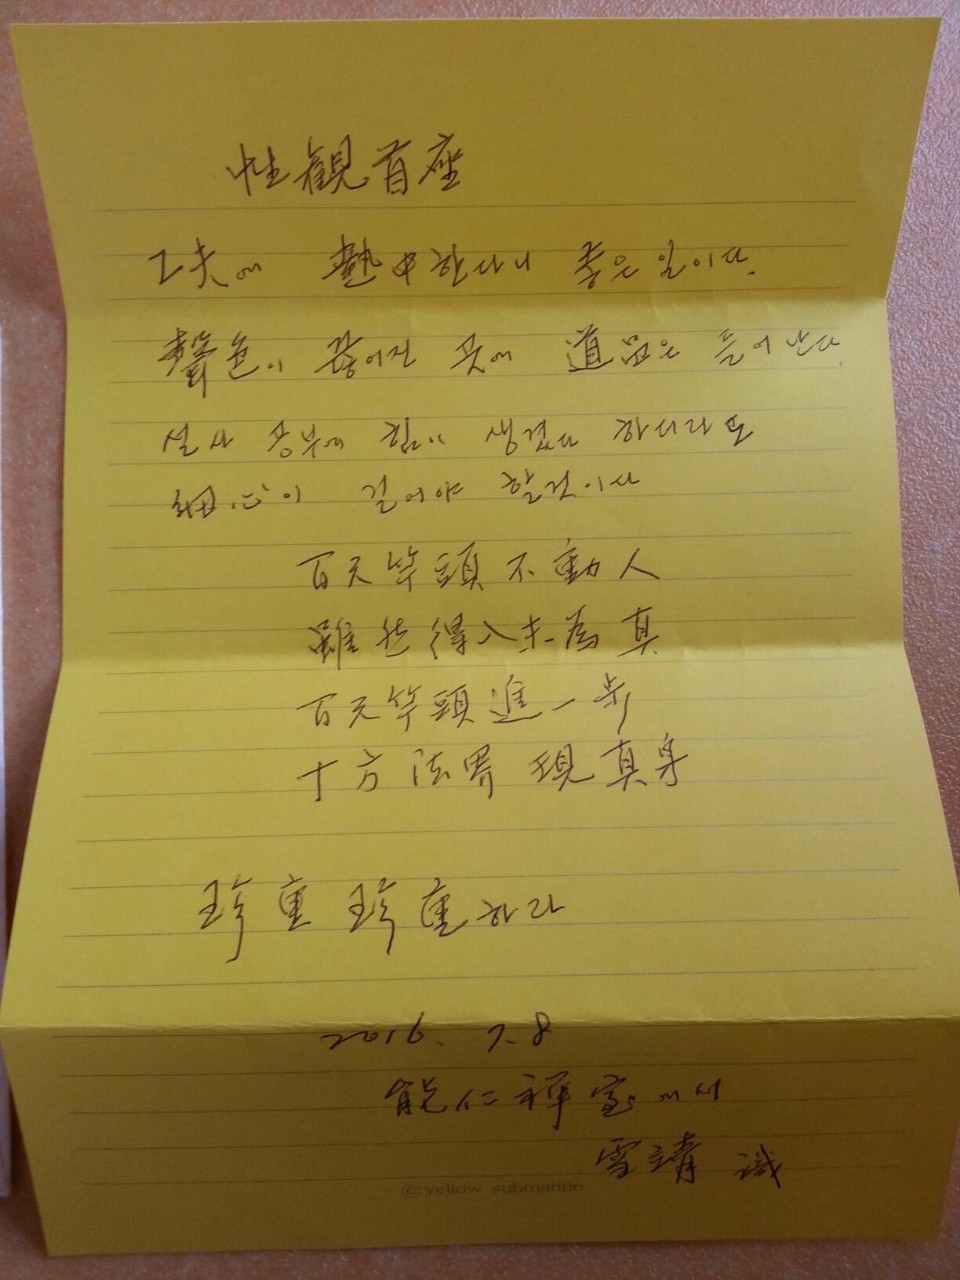 性觀首座
工夫에 熱中한다니 좋은 일이다.
聲色이 끊어진 곳에 道 은 들어난다.
설사 공부에 힘이 생겼다 하더라도
細心이 길어야 할것이다
百尺竿頭不動人
雖然得入未為真
百尺竿頭進一步
十方法界現真身
珍重珍重하라
2016. 7. 8
能仁禪室에서
雪靖 識
© yellow submarine